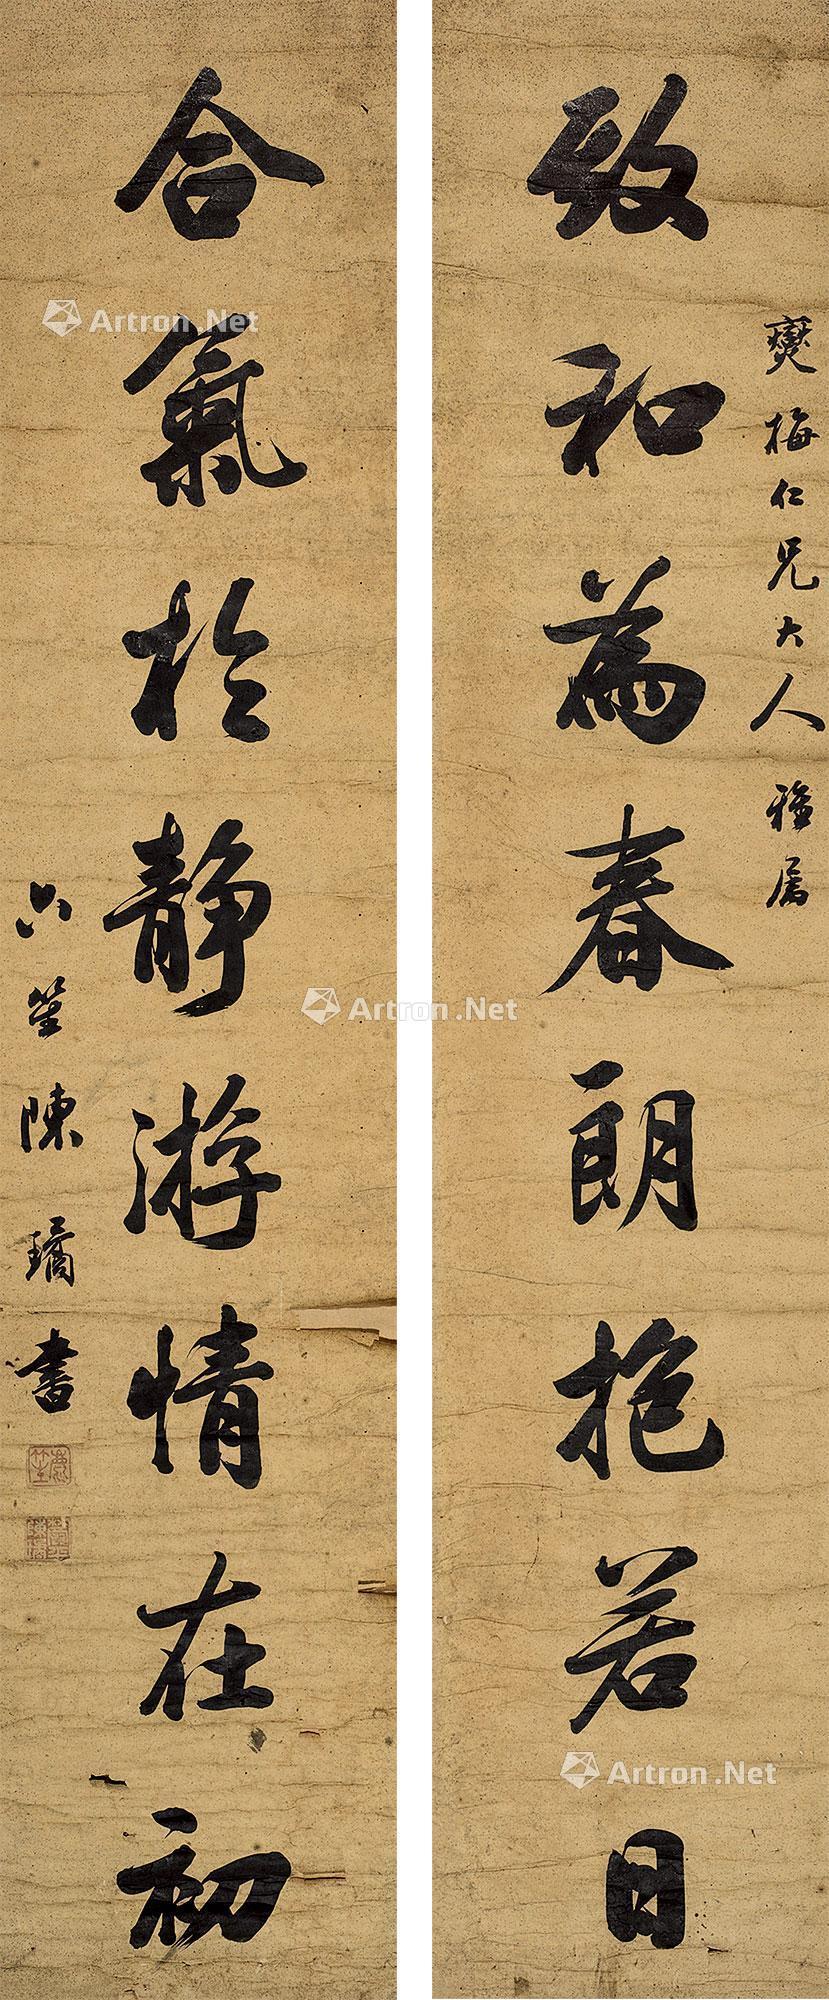 燮梅仁兄大人雅属
致和為春朗抱若日
合氣於静游情在初
六笙陳璚書
Artron.Net
Artron.Net
Artron.Net